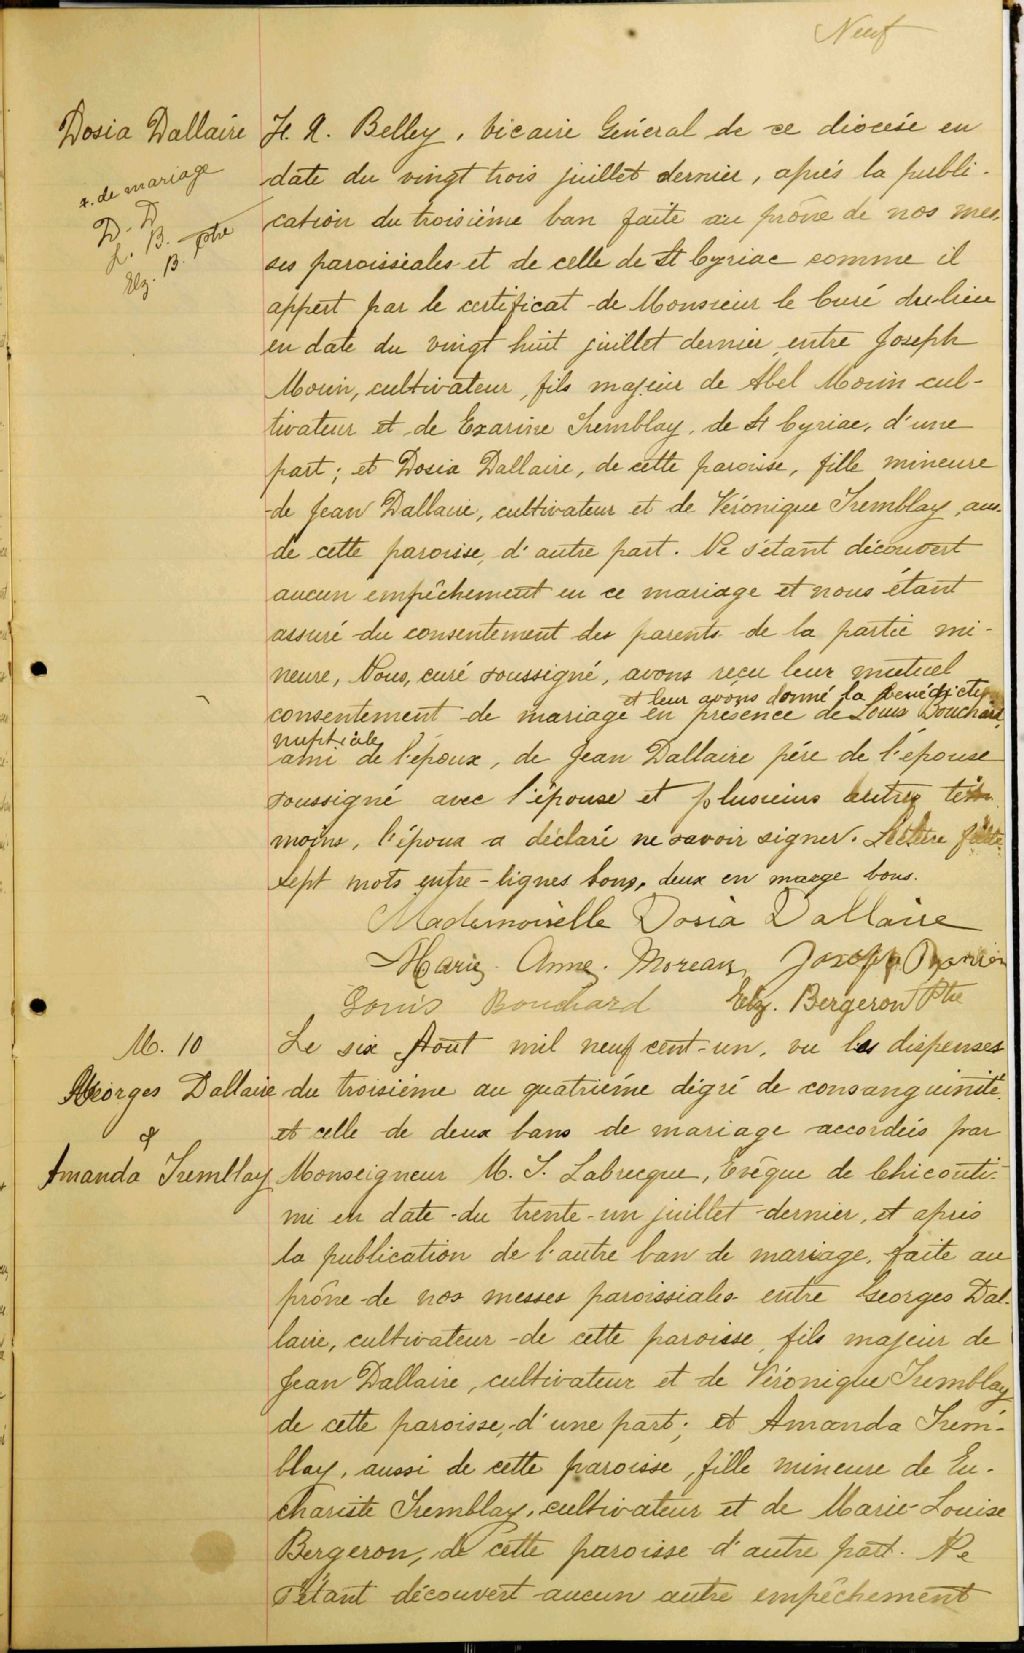 Neuf
Dosia Dallaire
x. de mariage
D. D
L. B.
Elz. B. ptre
F. X. Belley, Vicaire Général de ce diocèse en
date du vingt trois juillet dernier, après la publi-
cation du troisième ban faite au prône de nos mes-
ses paroissiales et de celle de St Cyriac comme il
appert par le certificat de Monsieur le Curé du lieu
en date du vingt huit juillet dernier, entre Joseph
Morin, cultivateur, fils majeur de Abel Morin cul-
tivateur et de Exarine Tremblay, de St Cyriac, d'une
part; et Dosia Dallaire, de cette paroisse, fille mineure
de Jean Dallaire, cultivateur et de Véronique Tremblay, aus.
de cette paroisse, d'autre part. Ne s'étant découvert
aucun empêchement en ce mariage et nous étant
assuré du consentement des parents de la partie mi-
neure, Nous, curé soussigné, avons reçu leur mutuel
et leur avons donné la bénédiction
consentement de mariage en présence de Louis Bouchard,
nuptiale
ami de l'époux, de Jean Dallaire père de l'épouse
soussigné avec l'épouse et plusieurs autres té-
moins, l'époux a déclaré ne savoir signer. Lecture faite.
Sept mots entre-lignes bons, deux en marge bons.
Mademoiselle Dosia Dallaire
Marie. Anne. Moreau Joseph
Louis Bouchard Elz. Bergeron Ptre
M. 10
Georges Dallaire
&
Amanda Tremblay
Le six Août mil neuf cent-un, vu les dispenses
du troisième au quatrième dégré de consanguinité
et celle de deux bans de mariage accordées par
Monseigneur M. T. Labrecque, Evêque de Chicouti-
mi en date du trente-un juillet dernier, et après
la publication de l'autre ban de mariage, faite au
prône de nos messes paroissiales entre Georges Dal-
laire, cultivateur de cette paroisse, fils majeur de
Jean Dallaire, cultivateur et de Véronique Tremblay
de cette paroisse, d'une part; et Amanda Trem-
blay, aussi de cette paroisse, fille mineure de Eu-
chariste Tremblay, cultivateur et de Marie-Louise
Bergeron, de cette paroisse d'autre part. Ne
s'étant découvert aucun autre empêchement